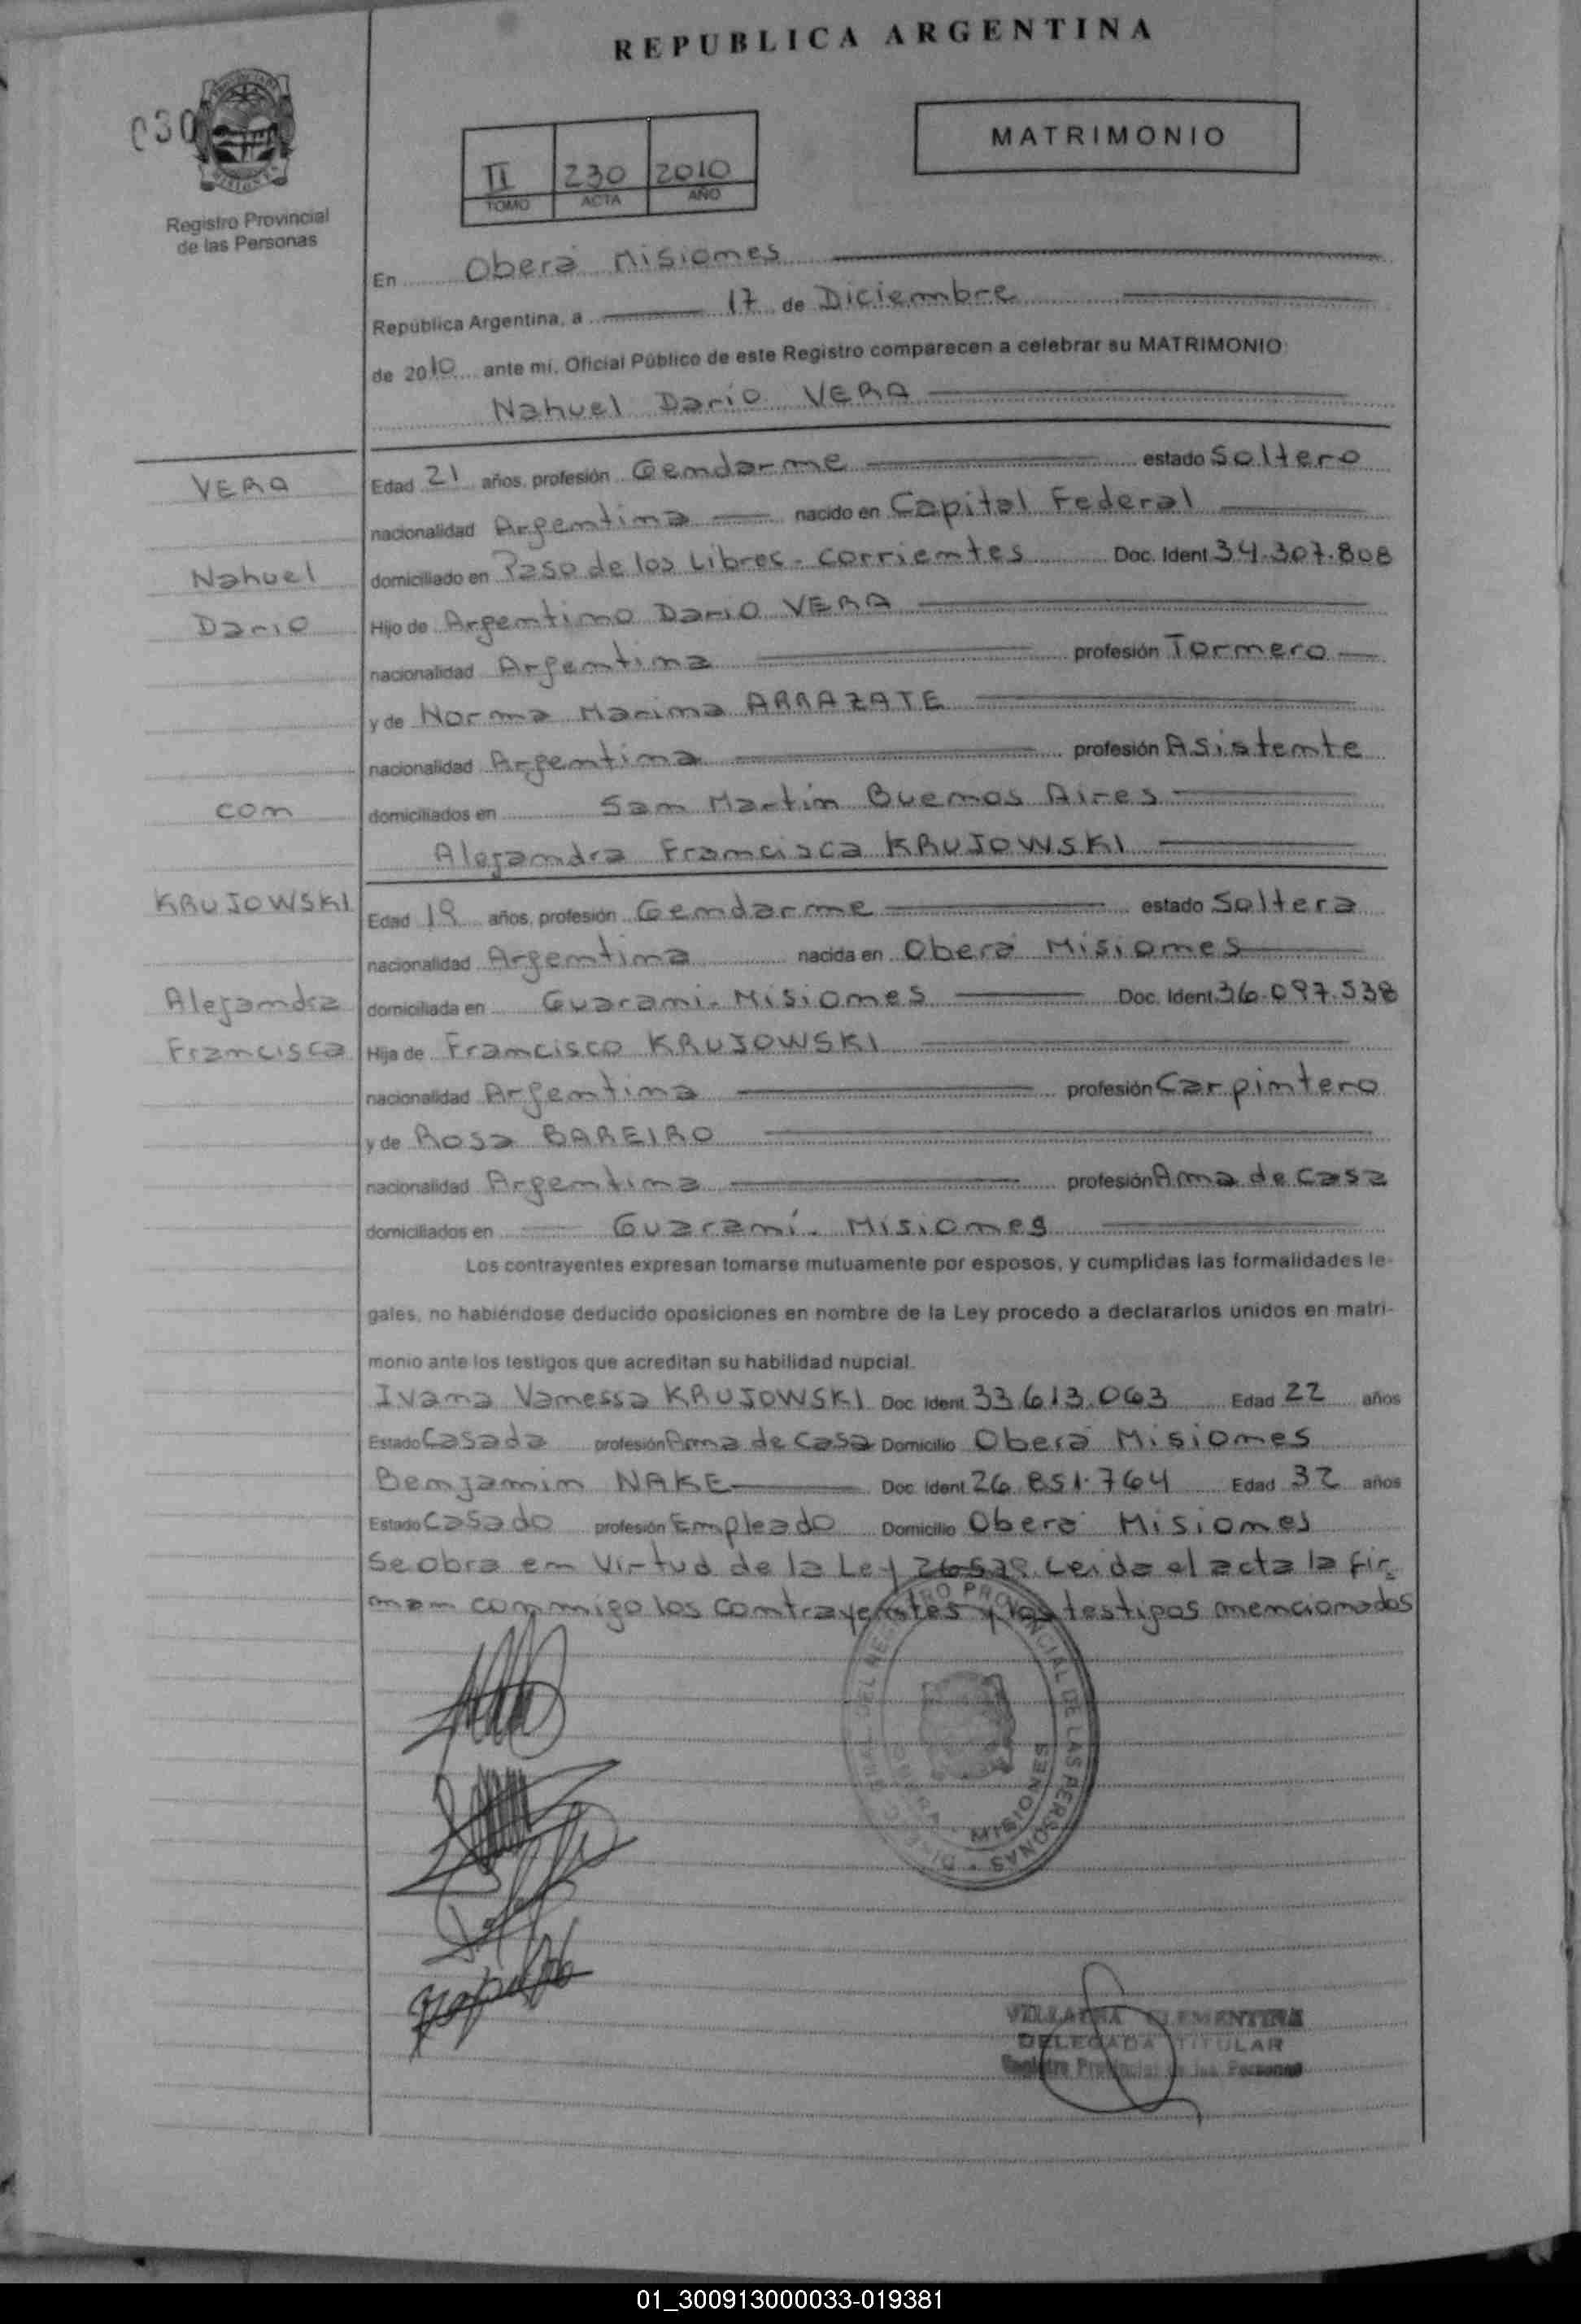 REPUBLICA ARGENTINA
030
MATRIMONIO
II 230 2010
TOMO ACTA AÑO
Registro Provincial
de las Personas
En Oberá Misiones
República Argentina, a 17 de Diciembre
de 2010 ante mi, Oficial Público de este Registro comparecen a celebrar su MATRIMONIO
Nahuel Darío VERA
VERA
Edad 21 años, profesión Gendarme estado Soltero
nacionalidad Argentina nacido en Capital Federal
Nahuel
domiciliado en Paso de los Libres - Corrientes Doc. Ident. 34.307.808
Dario
Hijo de Argentino Dario VERA
nacionalidad Argentina profesión Tornero
y de Norma Marina ARRAZATE
nacionalidad Argentina profesión Asistente
con
domiciliados en San Martín Buenos Aires
Alejandra Francisca KRUJOWSKI
KRUJOWSKI
Edad 19 años, profesión Gendarme estado Soltera
nacionalidad Argentina nacida en Oberá Misiones
Alejandra
domiciliada en Guarani - Misiones Doc. Ident. 36.097.538
Francisca
Hija de Francisco KRUJOWSKI
nacionalidad Argentina profesión Carpintero
y de Rosa BAREIRO
nacionalidad Argentina profesión Ama de Casa
domiciliados en Guaraní - Misiones
Los contrayentes expresan tomarse mutuamente por esposos, y cumplidas las formalidades le-
gales, no habiéndose deducido oposiciones en nombre de la Ley procedo a declararlos unidos en matri-
monio ante los testigos que acreditan su habilidad nupcial.
Ivana Vanessa KRUJOWSKI Doc. Ident. 33.613.063 Edad 22 años
Estado Casada profesión Ama de Casa Domicilio Oberá Misiones
Benjamin NAKE Doc. Ident. 26.851.764 Edad 32 años
Estado Casado profesión Empleado Domicilio Oberá Misiones
Se obra en Virtud de la Ley 26579. Leida el acta la fir-
man conmigo los contrayentes y los testigos mencionados
DEL REGISTRO PROVINCIAL DE LAS PERSONAS
OBERA - MISIONES
CLEMENTINA
DELEGADA TITULAR
Registro Provincial de las Personas
01_300913000033-019381